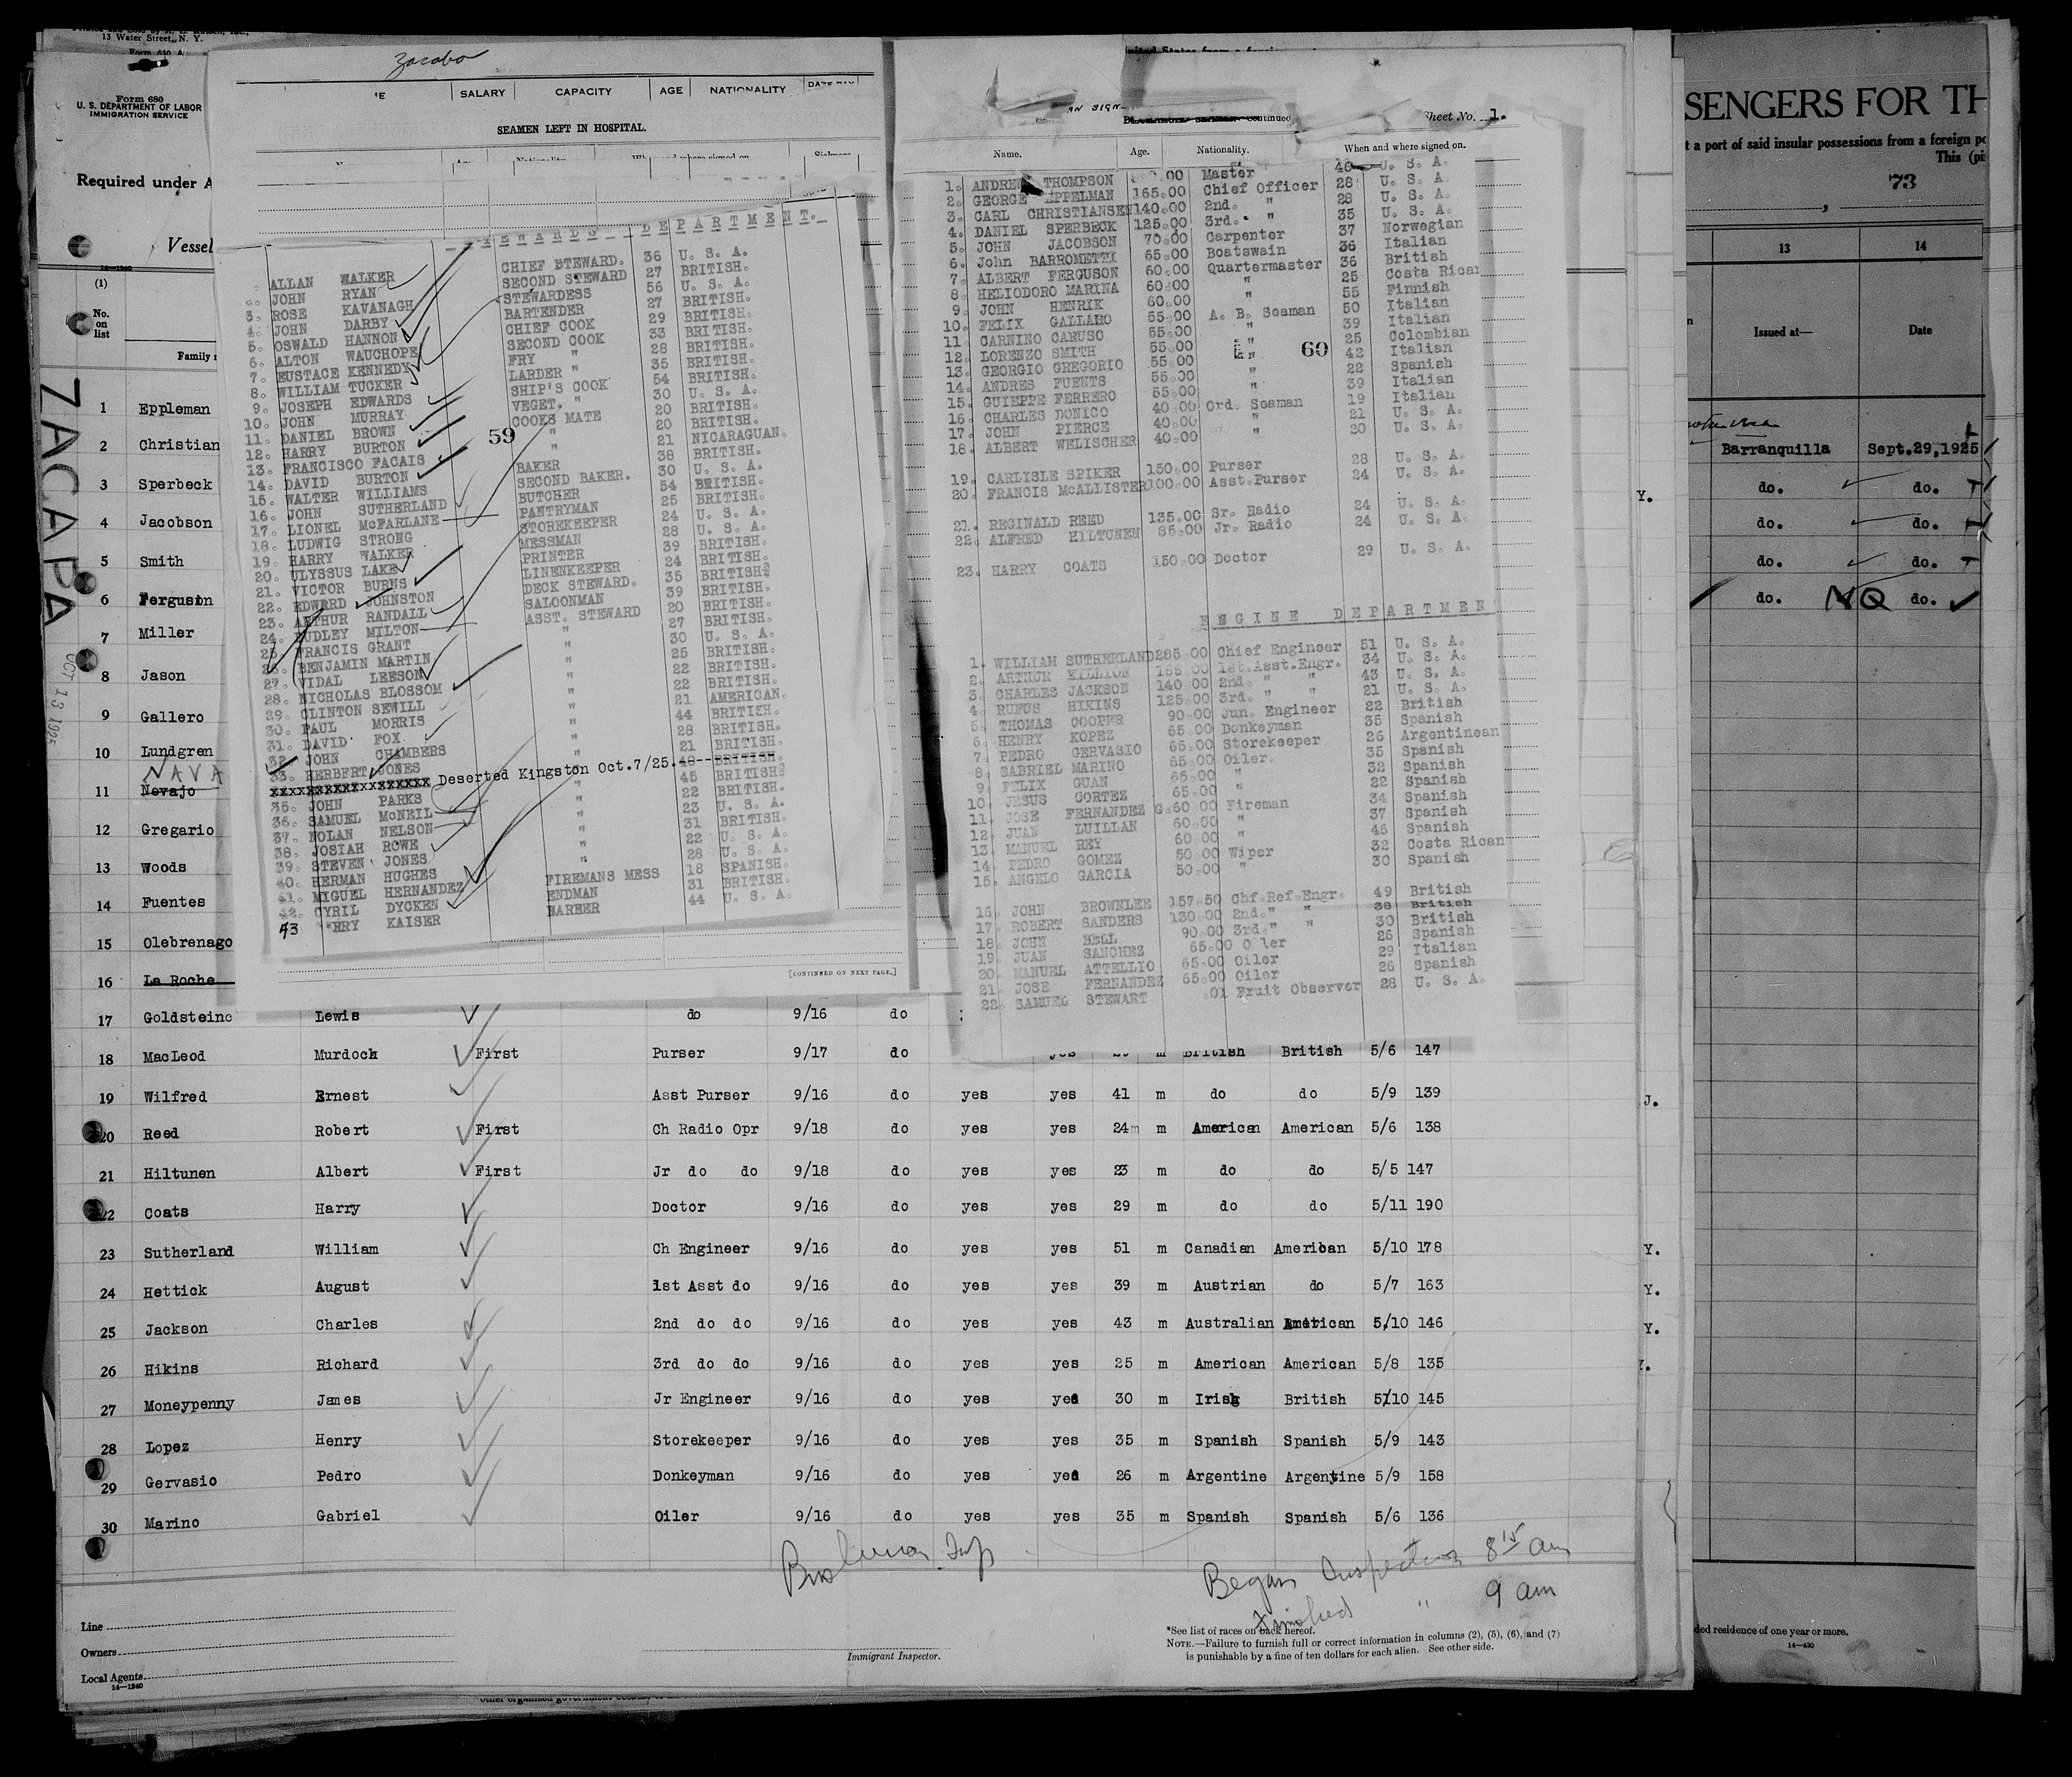 13 Water Street, N. Y.
Form 680
U. S. DEPARTMENT OF LABOR
IMMIGRATION SERVICE
Required under A
Vessel
14—1240
(1)
No. on list
Family
ZACAPA
OCT 13 1925
Zacapa
SALARY CAPACITY AGE NATIONALITY
SEAMEN LEFT IN HOSPITAL.
DEPARTMENT.
ALLAN WALKER CHIEF STEWARD. 36 U. S. A.
JOHN RYAN SECOND STEWARD 27 BRITISH.
3. ROSE KAVANAGH STEWARDESS 56 U. S. A.
4. JOHN DARBY BARTENDER 27 BRITISH.
5. OSWALD HANNON CHIEF COOK 29 BRITISH.
6. ALTON WAUCHOPE SECOND COOK 33 BRITISH.
7. EUSTACE KENNEDY FRY " 28 BRITISH.
8. WILLIAM TUCKER LARDER " 35 BRITISH.
9. JOSEPH EDWARDS SHIP'S COOK 54 BRITISH.
10. JOHN MURRAY VEGET. " 30 U. S. A.
11. DANIEL BROWN COOKS MATE 20 BRITISH.
12. HARRY BURTON " 20 BRITISH.
13. FRANCISCO FACAIS " 21 NICARAGUAN.
14. DAVID BURTON BAKER 38 BRITISH.
15. WALTER WILLIAMS SECOND BAKER. 30 U. S. A.
16. JOHN SUTHERLAND BUTCHER 54 BRITISH.
17. LIONEL McFARLANE PANTRYMAN 25 BRITISH.
18. LUDWIG STRONG STOREKEEPER 24 U. S. A.
19. HARRY WALKER MESSMAN 28 U. S. A.
20. ULYSSUS LAKE PRINTER 39 BRITISH.
21. VICTOR BURNS LINENKEEPER 24 BRITISH.
22. EDWARD JOHNSTON DECK STEWARD. 35 BRITISH.
23. ARTHUR RANDALL SALOONMAN 39 BRITISH.
24. DUDLEY MILTON ASST. STEWARD 20 BRITISH.
25. FRANCIS GRANT " 27 BRITISH.
26. BENJAMIN MARTIN " 30 U. S. A.
27. VIDAL LEESON " 25 BRITISH.
28. NICHOLAS BLOSSOM " 22 BRITISH.
29. CLINTON SEWILL " 22 BRITISH.
30. PAUL MORRIS " 21 AMERICAN.
31. DAVID FOX " 44 BRITISH.
32. JOHN CHAMBERS " 28 BRITISH.
33. HERBERT JONES " 21 BRITISH.
xxxxxxxxxxxxxxxxxxx Deserted Kingston Oct.7/25. 40 BRITISH.
35. JOHN PARKS " 45 BRITISH.
36. SAMUEL McNEIL " 22 BRITISH.
37. NOLAN NELSON " 23 U. S. A.
38. JOSIAH ROWE " 31 BRITISH.
39. STEVEN JONES " 22 U. S. A.
40. HERMAN HUGHES " 28 U. S. A.
41. MIGUEL HERNANDEZ FIREMANS MESS 18 SPANISH.
42. CYRIL DYCKEN ENDMAN 31 BRITISH.
43 RRY KAISER BARBER 44 U. S. A.
59
[CONTINUED ON NEXT PAGE.]
Continued
Sheet No. 1.
Name. Age. Nationality. When and where signed on.
1. ANDREW THOMPSON Master 40 U. S. A.
2. GEORGE EPPELMAN 165.00 Chief Officer 28 U. S. A.
3. CARL CHRISTIANSEN 140.00 2nd. " 28 U. S. A.
4. DANIEL SPERBECK 125.00 3rd. " 35 U. S. A.
5. JOHN JACOBSON 70.00 Carpenter 37 Norwegian
6. John BARROMETTI 65.00 Boatswain 36 Italian
7. ALBERT FERGUSON 60.00 Quartermaster 36 British
8. HELIODORO MARINA 60.00 " 25 Costa Rican
9. JOHN HENRIK 60.00 " 55 Finnish
10. FELIX GALLARO 55.00 A. B. Seaman 50 Italian
11. CARNINO CARUSO 55.00 " 39 Italian
12. LORENZO SMITH 55.00 " 25 Colombian
13. GEORGIO GREGORIO 55.00 " 42 Italian
14. ANDRES FUENTS 55.00 " 22 Spanish
15. GUIEPPE FERRERO 55.00 " 39 Italian
16. CHARLES DONICO 40.00 Ord. Seaman 19 Italian
17. JOHN PIERCE 40.00 " 21 U. S. A.
18. ALBERT WELISCHER 40.00 " 20 U. S. A.
60
19. CARLISLE SPIKER 150.00 Purser 28 U. S. A.
20. FRANCIS McALLISTER 100.00 Asst.Purser 24 U. S. A.
21. REGINALD REED 135.00 Sr. Radio 24 U. S. A.
22. ALFRED HILTUNEN 85.00 Jr. Radio 24 U. S. A.
23. HARRY COATS 150.00 Doctor 29 U. S. A.
ENGINE DEPARTMEN
1. WILLIAM SUTHERLAND 285.00 Chief Engineer 51 U. S. A.
2. ARTHUR KILLION 165.00 1st.Asst.Engr. 34 U. S. A.
3. CHARLES JACKSON 140.00 2nd. " " 43 U. S. A.
4. RUFUS HIKINS 125.00 3rd. " " 21 U. S. A.
5. THOMAS COOPER 90.00 Jun. Engineer 22 British
6. HENRY KOPEZ 65.00 Donkeyman 35 Spanish
7. PEDRO GERVASIO 65.00 Storekeeper 26 Argentinean
8. GABRIEL MARINO 65.00 Oiler. 35 Spanish
9. FELIX GUAN 65.00 " 32 Spanish
10. JESUS CORTEZ 65.00 " 22 Spanish
11. JOSE FERNANDEZ G. 60.00 Fireman 34 Spanish
12. JUAN LUILLAN 60.00 " 37 Spanish
13. MANUEL REY 60.00 " 46 Spanish
14. PEDRO GOMEZ 50.00 Wiper 32 Costa Rican
15. ANGELO GARCIA 50.00 " 30 Spanish
16. JOHN BROWNLEE 157.50 Chf.Ref.Engr. 49 British
17. ROBERT SANDERS 130.00 2nd." " 38 British
18. JOHN BELL 90.00 3rd." " 30 British
19. JUAN SANCHEZ 65.00 Oiler 26 Spanish
20. MANUEL ATTELLIO 65.00 Oiler 29 Italian
21. JOSE FERNANDEZ 65.00 Oiler 26 Spanish
22. SAMUEL STEWART 01 Fruit Observer 28 U. S. A.
1 Eppleman
2 Christian
3 Sperbeck
4 Jacobson
5 Smith
6 Ferguson
7 Miller
8 Jason
9 Gallero
10 Lundgren
NAVA
11 Navajo
12 Gregario
13 Woods
14 Fuentes
15 Olebrenago
16 La Roche
17 Goldstein Lewis do 9/16 do
18 MacLeod Murdock First Purser 9/17 do yes m British British 5/6 147
19 Wilfred Ernest Asst Purser 9/16 do yes yes 41 m do do 5/9 139
20 Reed Robert First Ch Radio Opr 9/18 do yes yes 24 m American American 5/6 138
21 Hiltunen Albert First Jr do do 9/18 do yes yes 23 m do do 5/5 147
22 Coats Harry Doctor 9/16 do yes yes 29 m do do 5/11 190
23 Sutherland William Ch Engineer 9/16 do yes yes 51 m Canadian American 5/10 178
24 Hettick August 1st Asst do 9/16 do yes yes 39 m Austrian do 5/7 163
25 Jackson Charles 2nd do do 9/16 do yes yes 43 m Australian American 5/10 146
26 Hikins Richard 3rd do do 9/16 do yes yes 25 m American American 5/8 135
27 Moneypenny James Jr Engineer 9/16 do yes yes 30 m Irish British 5/10 145
28 Lopez Henry Storekeeper 9/16 do yes yes 35 m Spanish Spanish 5/9 143
29 Gervasio Pedro Donkeyman 9/16 do yes yes 26 m Argentine Argentine 5/9 158
30 Marino Gabriel Oiler 9/16 do yes yes 35 m Spanish Spanish 5/6 136
Began Inspection 8 15 am
Finished " 9 am
Line
Owners
Local Agents
14—1240
Immigrant Inspector.
*See list of races on back hereof.
NOTE.—Failure to furnish full or correct information in columns (2), (5), (6), and (7)
is punishable by a fine of ten dollars for each alien. See other side.
Y.
J.
Y.
Y.
Y.
Y.
SENGERS FOR TH
t a port of said insular possessions from a foreign po
This (pi
73
13 14
Issued at— Date
Barranquilla Sept.29,1925
do. do.
do. do.
do. do.
do. NQ do.
ded residence of one year or more.
14—430